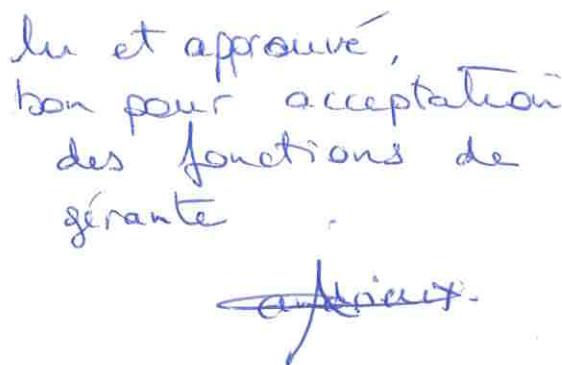 lu et approuvé,
bon pour acceptation
des fonctions de
gérante